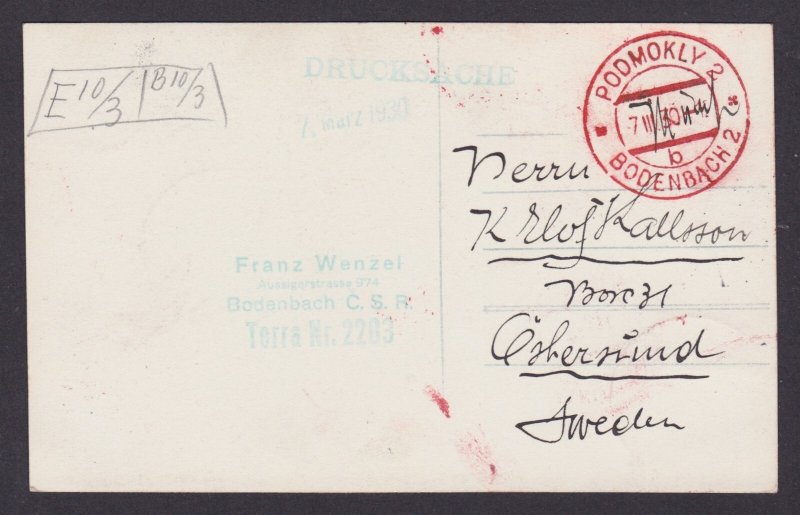 E 10/3 B 10/3
DRUCKSACHE
7. März 1930
PODMOKLY 2
7 III 30
b
BODENBACH 2
Herrn
K Elof Kallsson
Östersund
Sweden
Franz Wenzel
Aussigerstrasse 974
Bodenbach Č. S. R.
Terra Nr. 2203